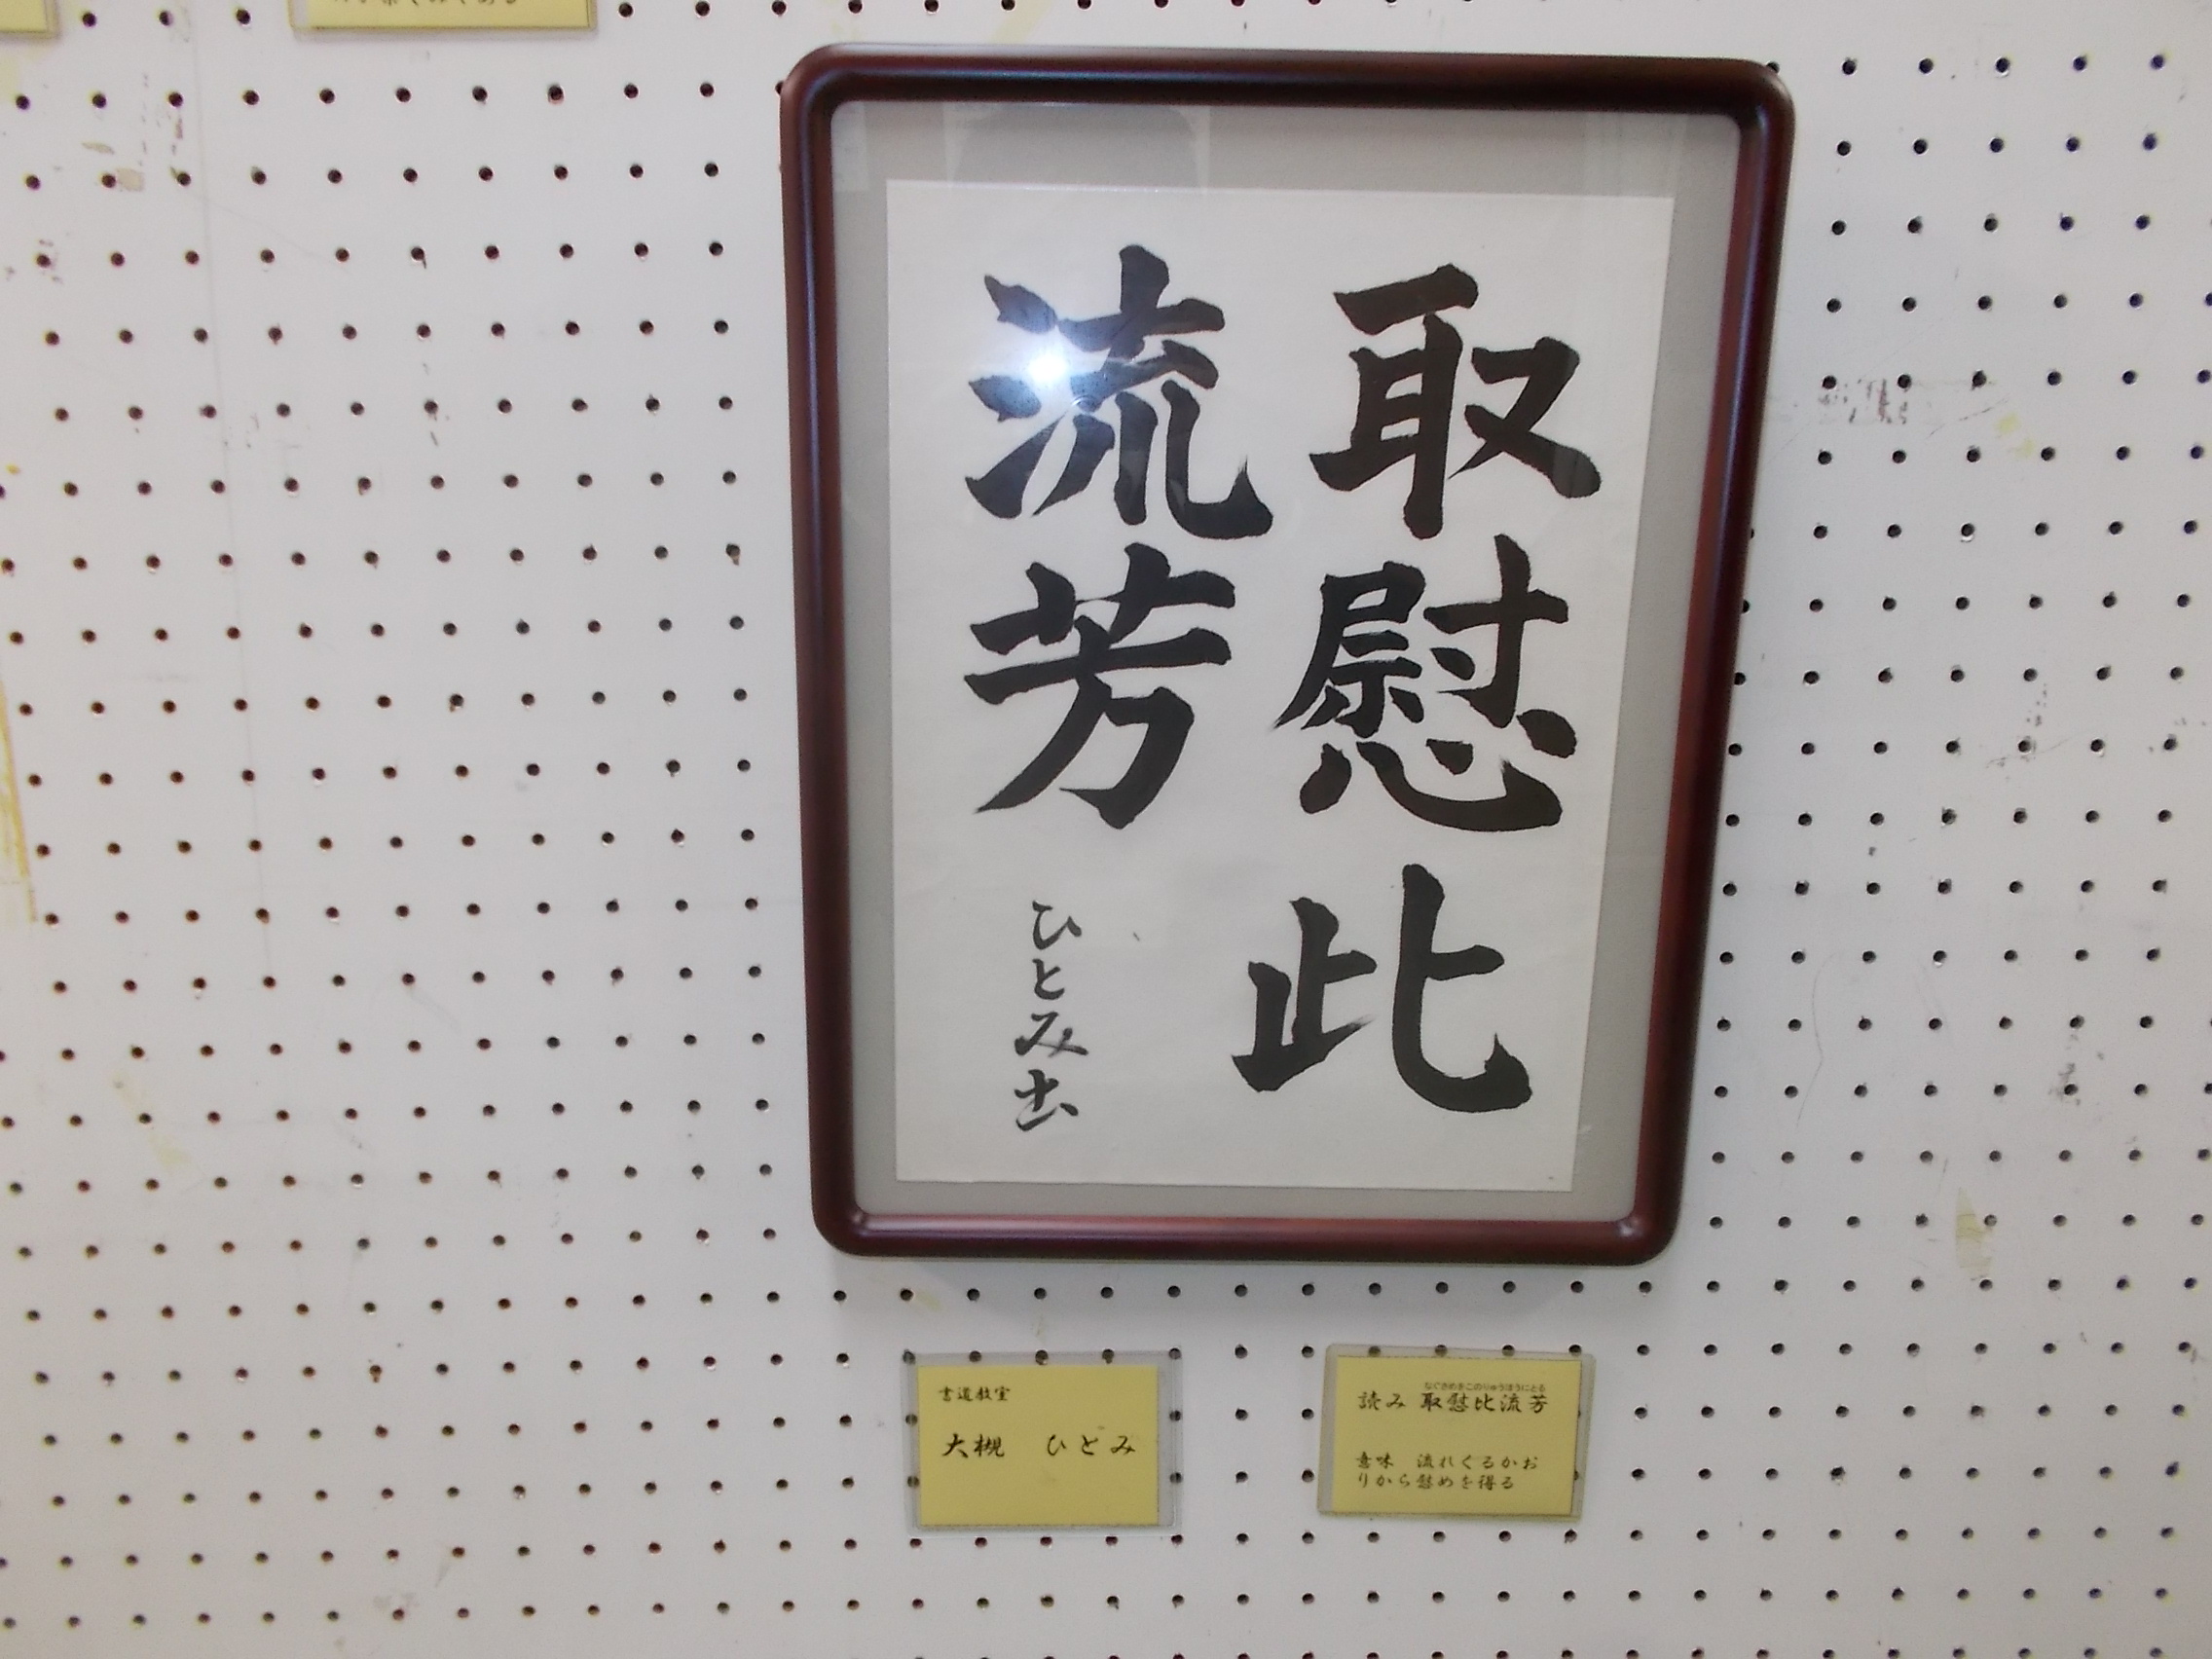 取慰此
流芳
ひとみ書
書道教室
大槻 ひとみ
なぐさめをこのりゅうほうにとる
読み 取慰比流芳
意味 流れくるかお
りから慰めを得る